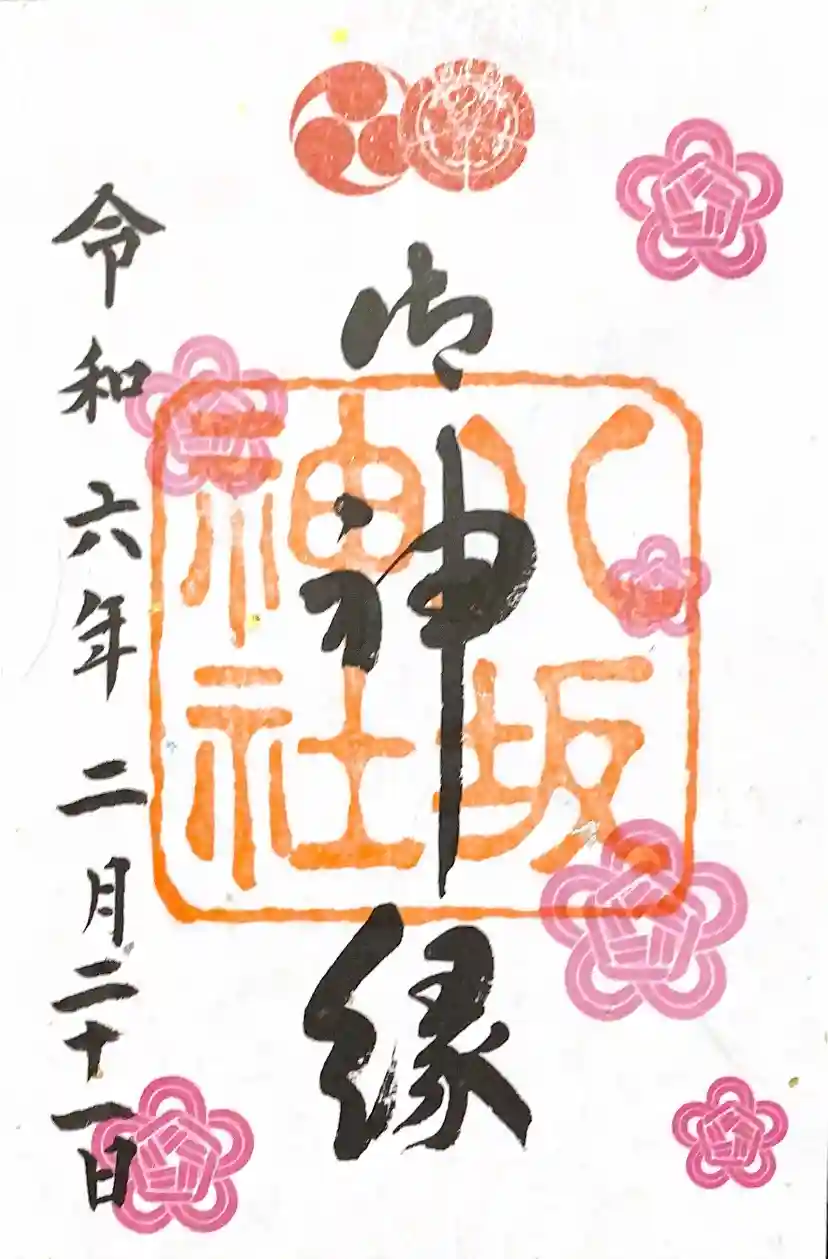 御神縁
八坂神社
令和六年二月二十一日